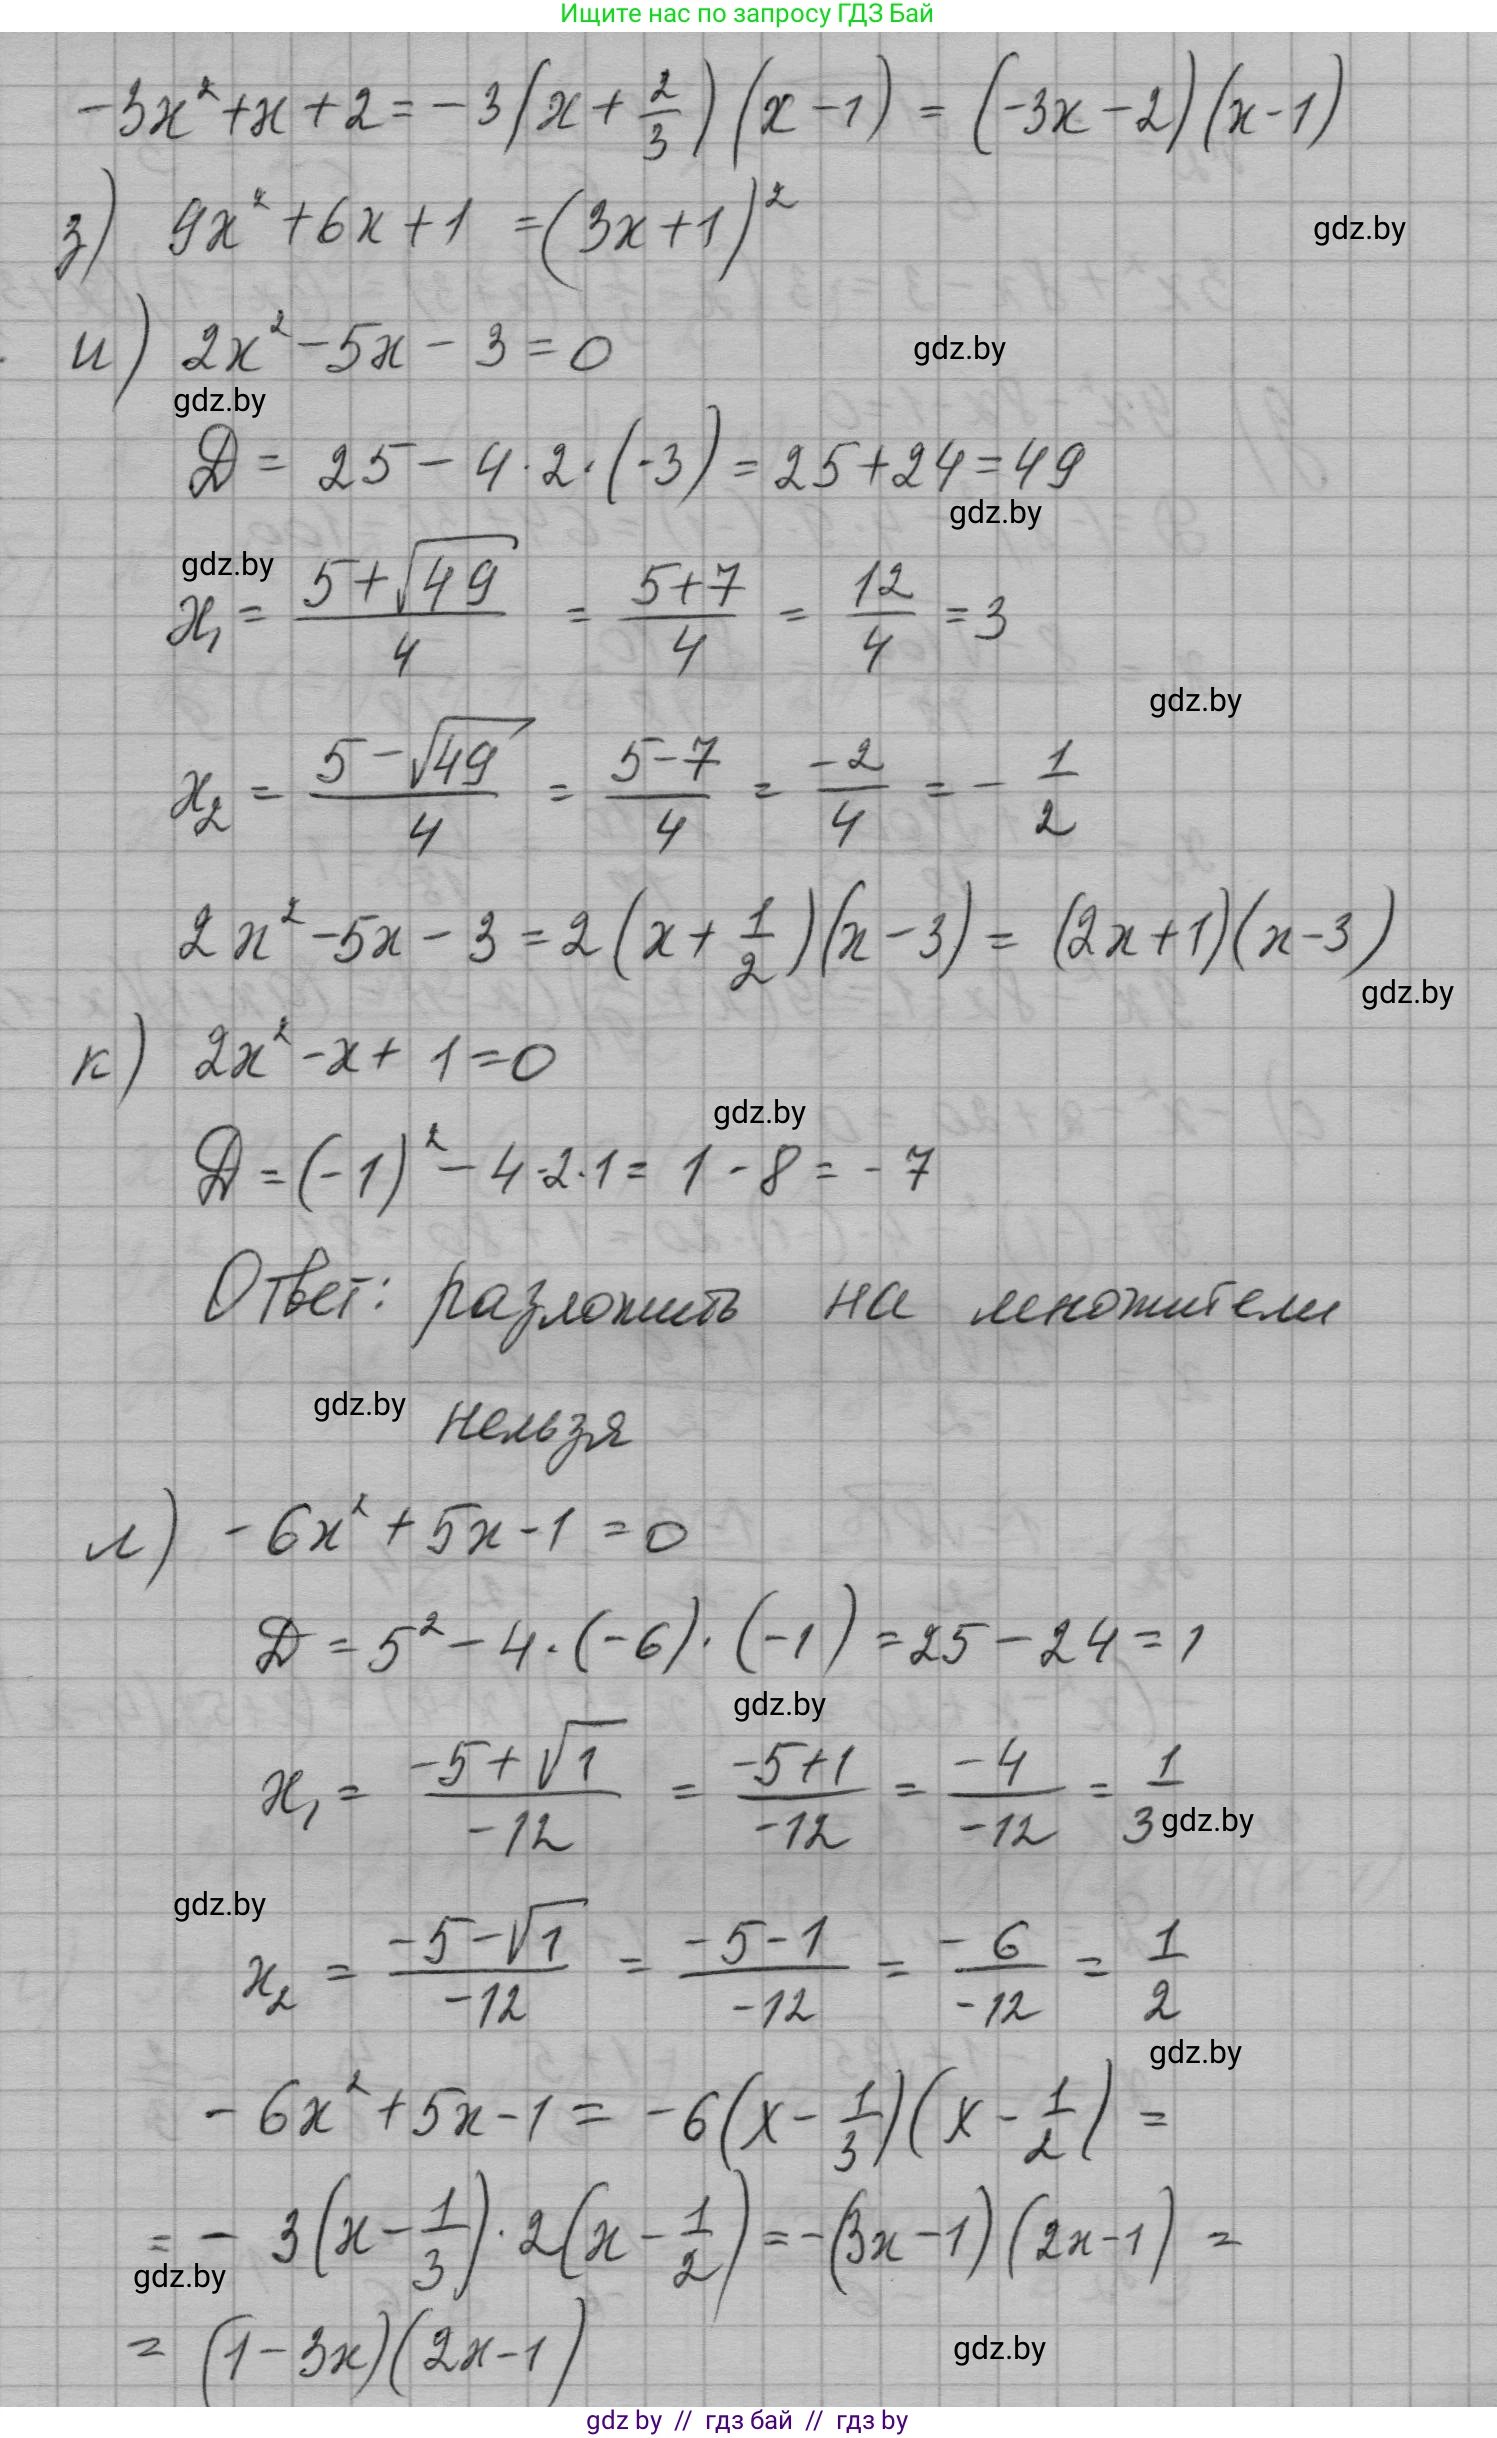 Ищите нас по запросу ГДЗ Бай
-3x² + x + 2 = -3(x + 2/3)(x - 1) = (-3x - 2)(x - 1)
з) 9x² + 6x + 1 = (3x + 1)²
gdz.by
и) 2x² - 5x - 3 = 0
gdz.by
gdz.by
D = 25 - 4·2·(-3) = 25 + 24 = 49
gdz.by
gdz.by
x₁ = (5 + √49)/4 = (5 + 7)/4 = 12/4 = 3
gdz.by
x₂ = (5 - √49)/4 = (5 - 7)/4 = -2/4 = -1/2
2x² - 5x - 3 = 2(x + 1/2)(x - 3) = (2x + 1)(x - 3)
gdz.by
к) 2x² - x + 1 = 0
gdz.by
D = (-1)² - 4·2·1 = 1 - 8 = -7
Ответ: разложить на множители
gdz.by
нельзя
л) -6x² + 5x - 1 = 0
D = 5² - 4·(-6)·(-1) = 25 - 24 = 1
gdz.by
x₁ = (-5 + √1)/-12 = (-5 + 1)/-12 = -4/-12 = 1/3
gdz.by
gdz.by
x₂ = (-5 - √1)/-12 = (-5 - 1)/-12 = -6/-12 = 1/2
gdz.by
-6x² + 5x - 1 = -6(x - 1/3)(x - 1/2) =
= -3(x - 1/3)·2(x - 1/2) = -(3x - 1)(2x - 1) =
gdz.by
= (1 - 3x)(2x - 1)
gdz.by
gdz by // гдз бай // гдз by